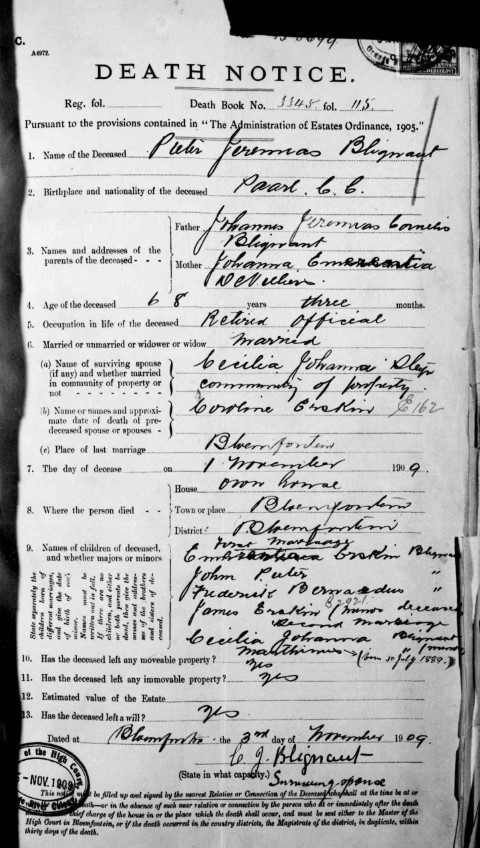 C.
A4972.
DEATH NOTICE.
Reg. fol. Death Book No. 3345. fol. 115.
Pursuant to the provisions contained in "The Administration of Estates Ordinance, 1905."
1. Name of the Deceased Pieter Jeremias Blignaut
2. Birthplace and nationality of the deceased Paarl. C. C.
3. Names and addresses of the parents of the deceased - - -
Father Johannes Jeremias Cornelis
Blignaut
Mother Johanna
De Villiers.
4. Age of the deceased 68 years three months.
5. Occupation in life of the deceased Retired Official
6. Married or unmarried or widower or widow married
(a) Name of surviving spouse (if any) and whether married in community of property or not - - - - - - -
Cecilia Johanna
community of property.
(b) Name or names and approximate date of death of pre-deceased spouse or spouses -
Caroline Erskin
(c) Place of last marriage Bloemfontein
7. The day of decease on 1 November 1909.
8. Where the person died - -
House own house
Town or place Bloemfontein
District Bloemfontein
9. Names of children of deceased, and whether majors or minors
State separately the children born of different marriages, and give the date of birth of each minor.
Names must be written out in full. If there are no children, and either or both parents be dead, then give the names and addresses of the brothers and sisters of deceased.
First Marriage
Erskin
John Pieter "
Frederick Bernardus "
James Erskin deceased
Second marriage
Cecilia Johanna Blignaut
(born 30 July 1889.)
10. Has the deceased left any moveable property? yes
11. Has the deceased left any immovable property? yes
12. Estimated value of the Estate
13. Has the deceased left a will? yes
Dated at Bloemfontein the 3rd day of November 1909.
C. J. Blignaut
(State in what capacity.) Surviving spouse
of the High Court
NOV. 1909
River Colony
This notice must be filled up and signed by the nearest Relative or Connection of the Deceased who shall at the time be at or
death—or in the absence of such near relative or connection by the person who at or immediately after the death
chief charge of the house in or place which the death shall occur, and must be sent either to the Master of the
High Court in Bloemfontein, or if the death occurred in the country districts, the Magistrate of the district, in duplicate, within
thirty days of the death.